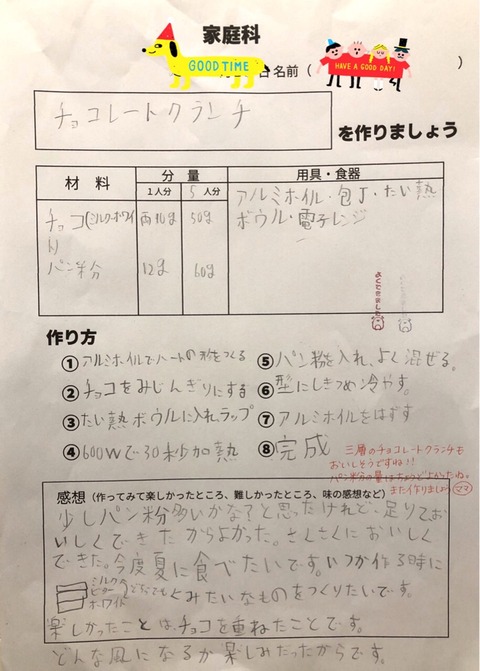 家庭科
GOOD TIME
HAVE A GOOD DAY!
名前( )
チョコレートクランチ
を作りましょう
材料 分量 用具・食器
1人分 5人分
チョコ(ミルク・ホワイト) 両10g 50g
パン粉 12g 60g
アルミホイル・包丁・たい熱
ボウル・電子レンジ
よくできました
作り方
①アルミホイルでハートの形をつくる
②チョコをみじんぎりにする
③たい熱ボウルに入れ、ラップ
④600Wで30秒加熱
⑤パン粉を入れ、よく混ぜる。
⑥型にしきつめ冷やす。
⑦アルミホイルをはずす
⑧完成
三層のチョコレートクランチも
おいしそうですね!!
パン粉の量はちょうどよかったね。
また作りましょう ママ
感想(作ってみて楽しかったところ、難しかったところ、味の感想など)
少しパン粉多いかなぁと思ったけれど、足りてお
いしくできたからよかった。さくさくにおいしく
できた。今度夏に食べたいです。いつか作る時に
ミルク
ビター
ホワイト
みたいなものをつくりたいです。
楽しかったことは、チョコを重ねたことです。
どんな風になるか楽しみだったからです。